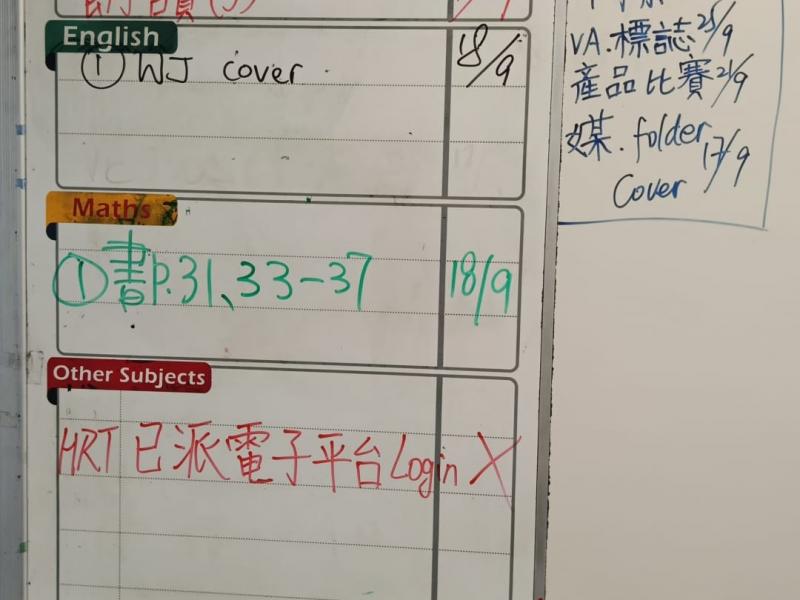 English
① WJ cover 18/9
Maths
① 書P.31、33-37 18/9
Other Subjects
HRT 已派電子平台Login X
VA.標誌 25/9
產品比賽 21/9
媒.folder 17/9
Cover